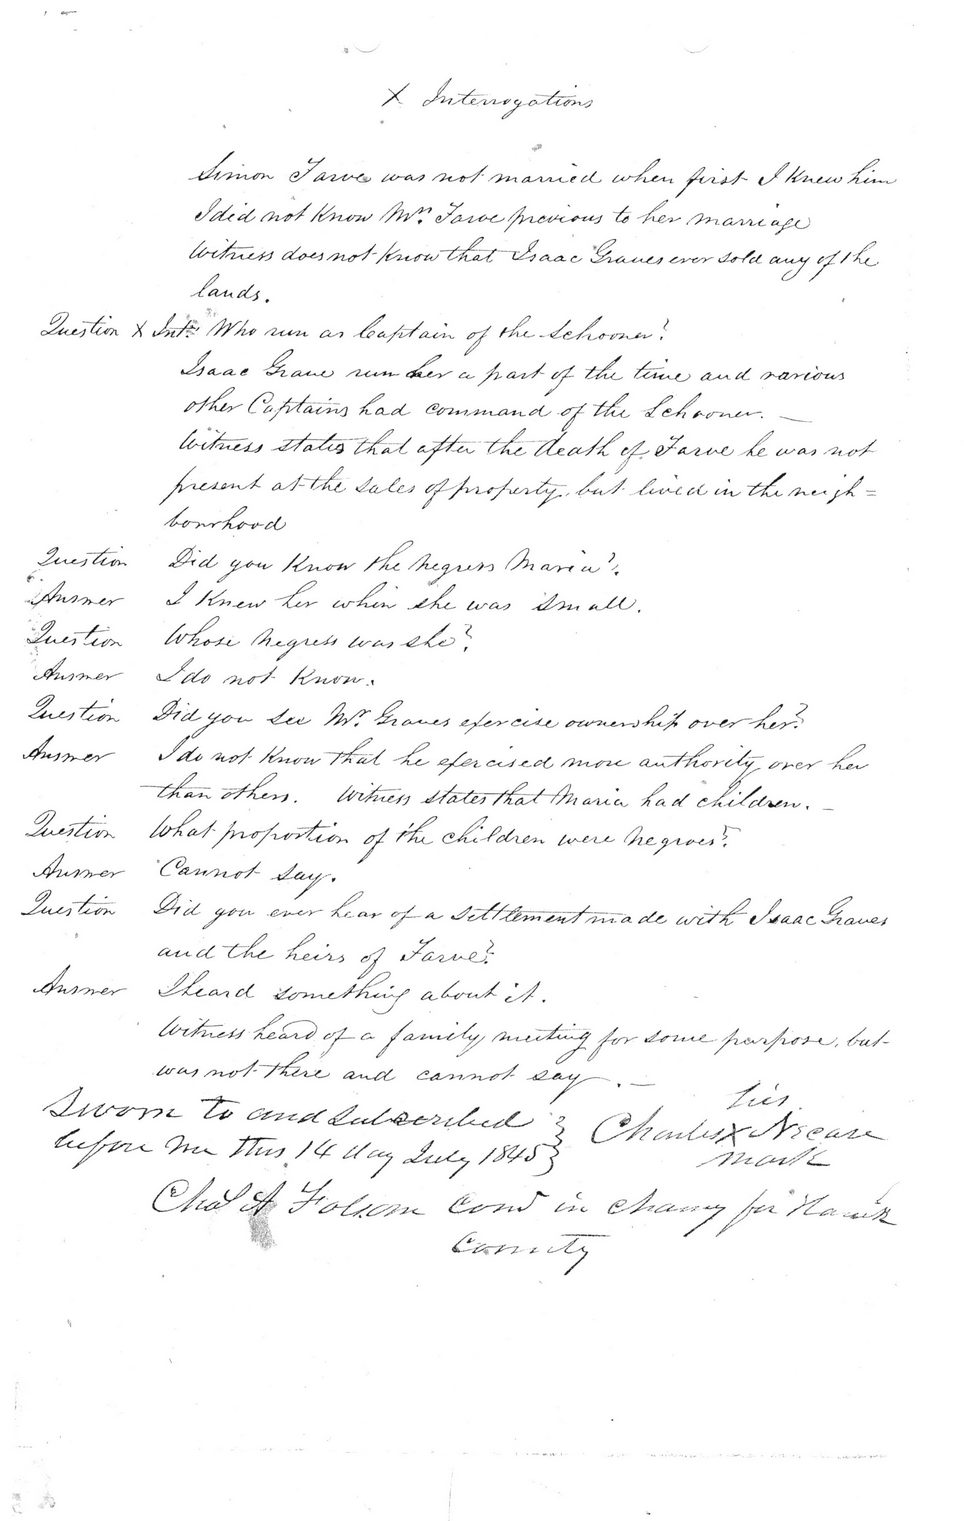 X Interrogations
Simon Farve was not married when first I knew him
I did not know Mrs. Farve previous to her marriage
Witness does not know that Isaac Graves ever sold any of the
lands.
Question X Intr. Who run as Captain of the Schooner?
Isaac Grave run her a part of the time and various
other Captains had command of the Schooner. —
Witness states that after the death of Farve he was not
present at the sales of property, but lived in the neigh=
bourhood
Question Did you know the negress Maria?.
Answer I knew her when she was small.
Question Whose negress was she?
Answer I do not know.
Question Did you see Mr. Graves exercise ownership over her?
Answer I do not know that he exercised more authority over her
than others. Witness states that Maria had children. —
Question What proportion of the children were negroes?
Answer Cannot say.
Question Did you ever hear of a settlement made with Isaac Graves
and the heirs of Farve?
Answer I heard something about it.
Witness heard of a family meeting for some purpose, but
was not there and cannot say. —
Sworn to and subscribed
before me this 14 day July 1845
his
Charles X Nicase
mark
Chas A Folsom Com in Chancy for Hanck
County